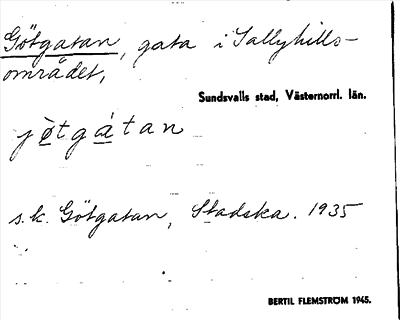 Götgatan, gata i Sallyhills-
området,
Sundsvalls stad, Västernorrl. län.
jø̀tgátan
s.k. Götgatan, Stadska. 1935
BERTIL FLEMSTRÖM 1945.